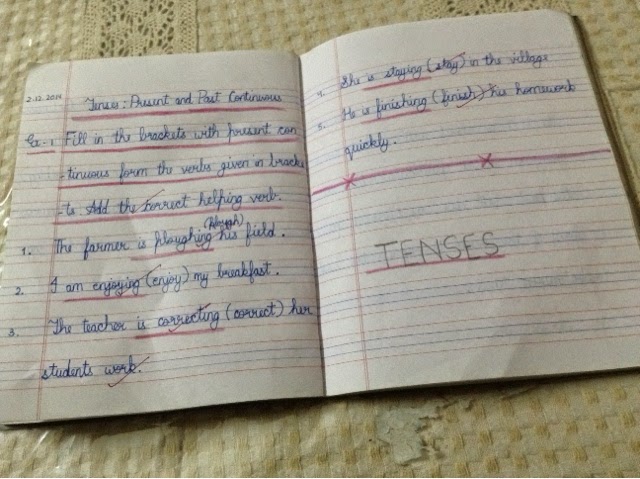 2.12.2014
Tenses: Present and Past Continuous
Ex-1 Fill in the brackets with present con
-tinuous form the verbs given in bracke
-ts. Add the correct helping verb.
1. The farmer is ploughing (plough) his field.
2. I am enjoying (enjoy) my breakfast.
3. The teacher is correcting (correct) her
students work.
4. She is staying (stay) in the village
5. He is finishing (finish) his homework
quickly.
TENSES